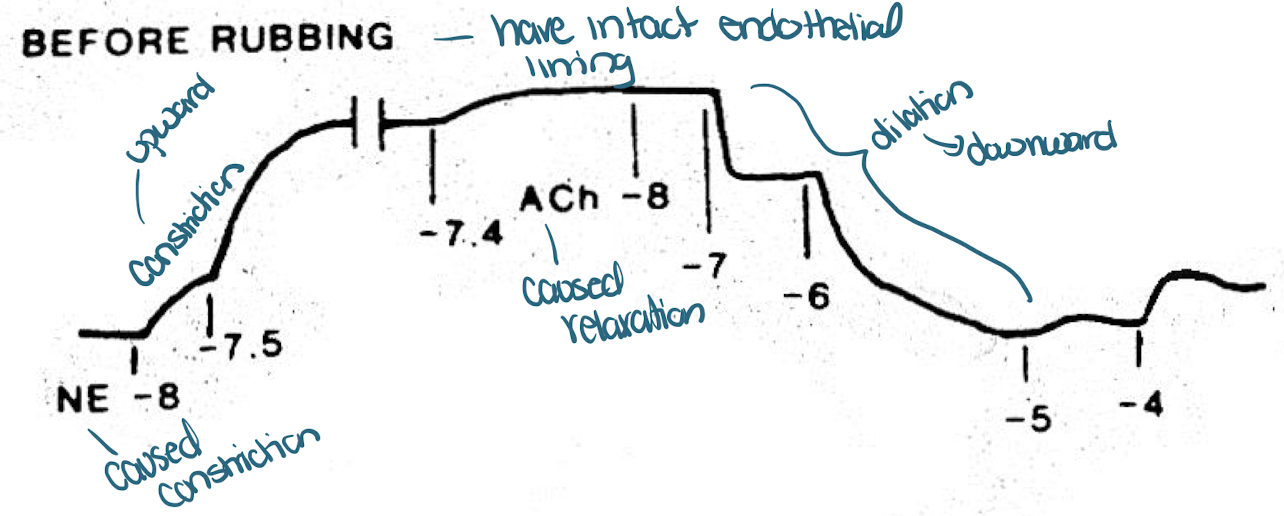 BEFORE RUBBING — have intact endothelial
lining
upward
constriction
dilation
→ downward
ACh -8
-7.4
caused
relaxation
-7
-6
-7.5
NE -8
caused
constriction
-5
-4